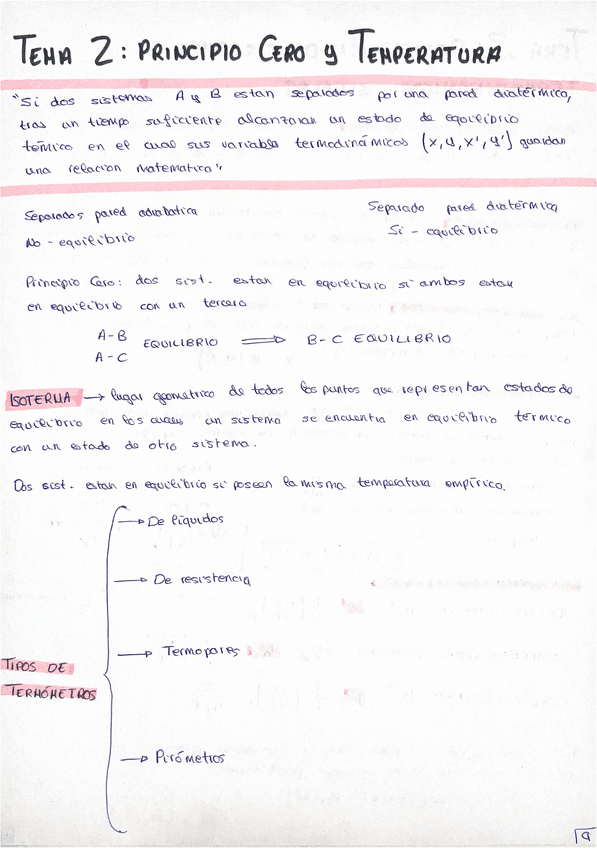 TEMA 2: PRINCIPIO CERO y TEMPERATURA
"Si dos sistemas A y B estan separados por una pared diatérmica,
tras un tiempo suficiente alcanzaran un estado de equilibrio
térmico en el cual sus variables termodinámicas (x, y, x', y') guardan
una relacion matematica"
Separados pared adiabatica
No - equilibrio
Separado pared diatérmica
Si - equilibrio
Principio Cero: dos sist. estan en equilibrio si ambos estan
en equilibrio con un tercero
A-B
A-C
EQUILIBRIO ⟹ B-C EQUILIBRIO
ISOTERMA → lugar geometrico de todos los puntos que representan estados de
equilibrio en los cuales un sistema se encuentra en equilibrio térmico
con un estado de otro sistema.
Dos sist. estan en equilibrio si poseen la misma temperatura empírica.
TIPOS DE
TERMÓMETROS
→ De líquidos
→ De resistencia
→ Termopares
→ Pirómetros